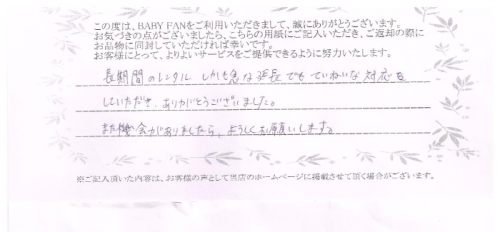 この度は、BABY FANをご利用いただきまして、誠にありがとうございます。
お気づきの点がございましたら、こちらの用紙にご記入いただき、ご返却の際に
お品物に同封していただければ幸いです。
お客様にとって、よりよいサービスをご提供できるように努力いたします。
長期間のレンタル しかも急な延長でもていねいな対応を
していただき、ありがとうございました。
また機会がありましたら、よろしくお願いします。
※ご記入頂いた内容は、お客様の声として当店のホームページに掲載させて頂く場合がございます。